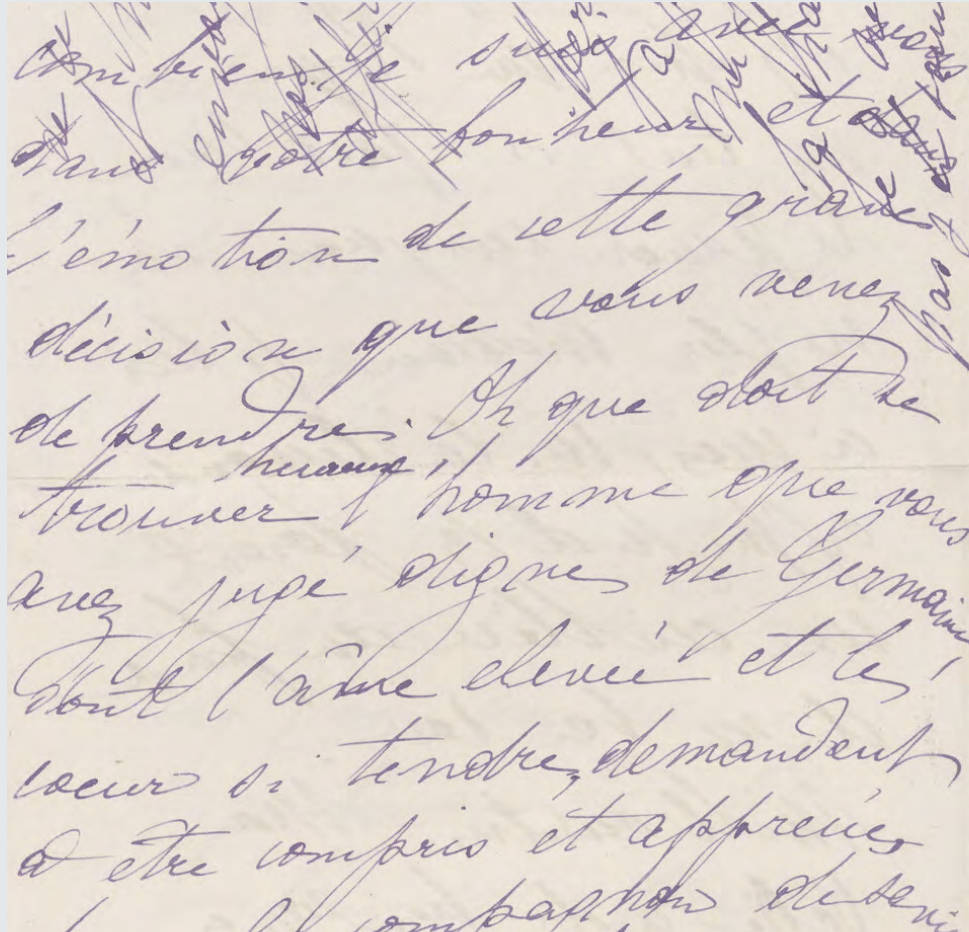 combien je suis avec vous
dans votre bonheur, et dans
l'émotion de cette grande
décision que vous venez
de prendre. Oh que doit se
heureux
trouver l'homme que vous
avez jugé digne de Germaine
dont l'âme elevée et le
coeur si tendre, demandent
à être compris et appréciés
compagnon de sa vie
pas